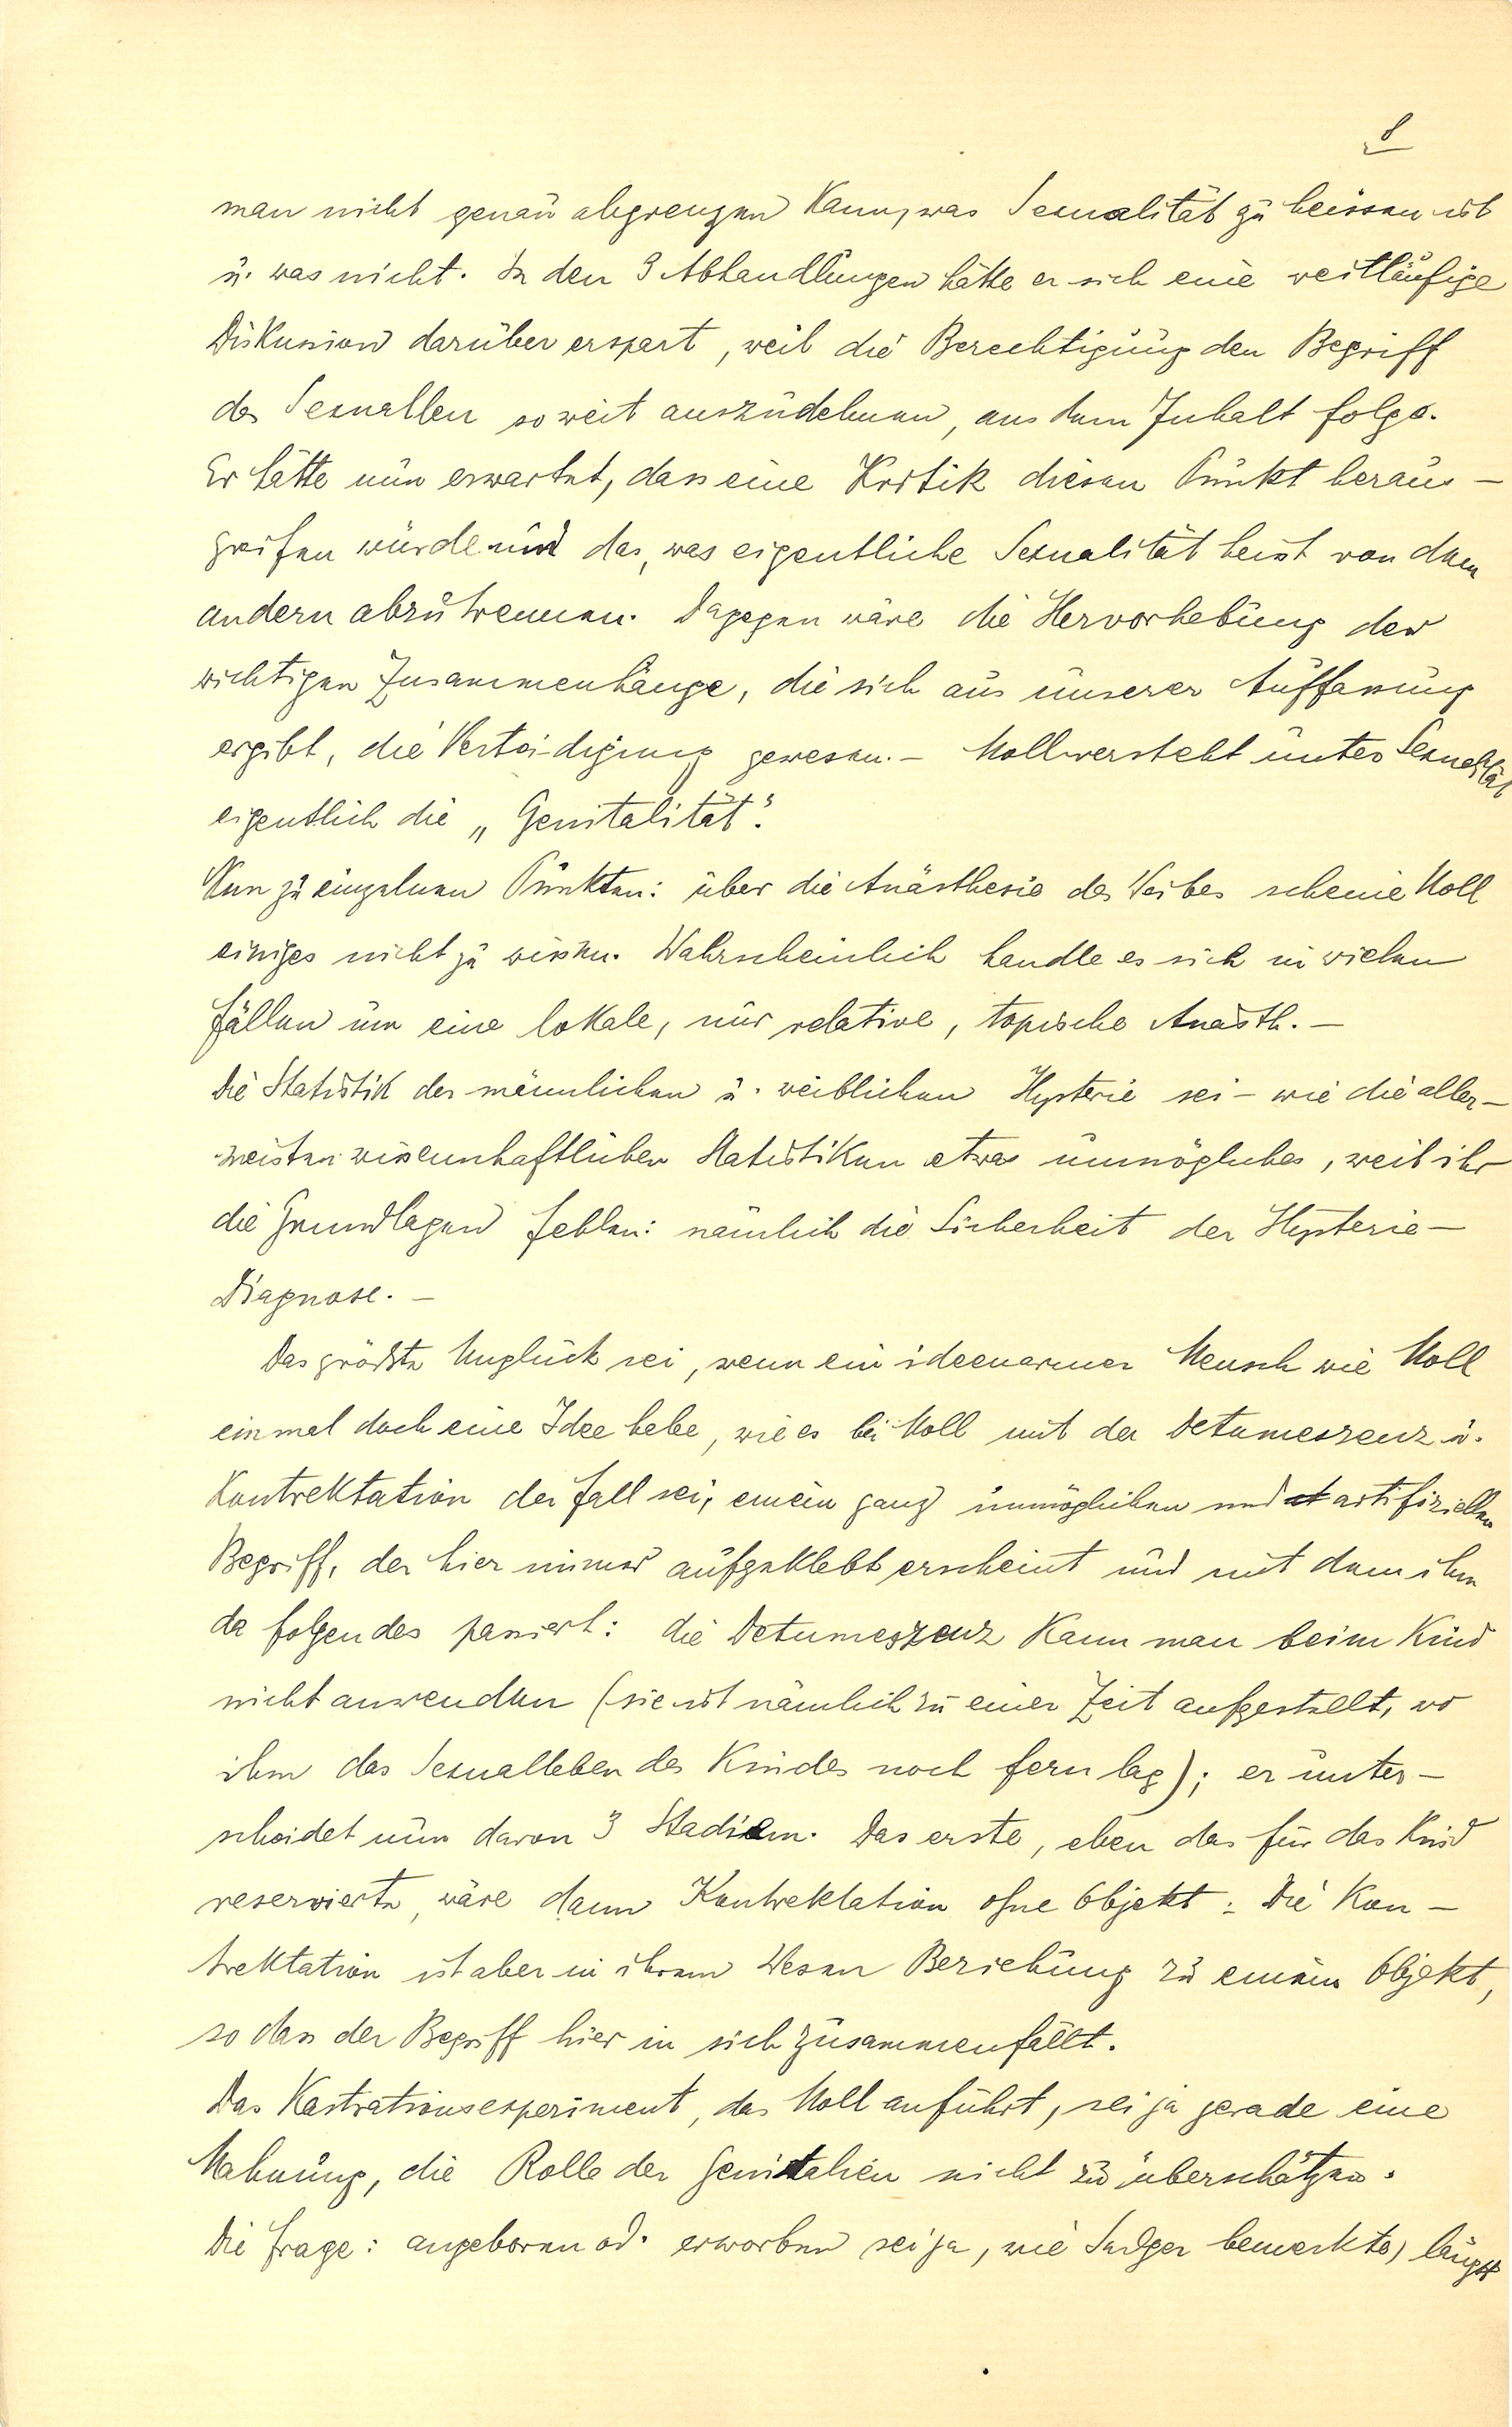 8
man nicht genau abgrenzen kann, was Sexualität zu heissen ist
u. was nicht. In den 3 Abhandlungen hätte er sich eine weitläufige
Diskussion darüber erspart, weil die Berechtigung den Begriff
des Sexuellen so weit auszudehnen, aus dem Inhalt folge.
Er hätte nun erwartet, dass eine Kritik diesen Punkt heraus-
greifen würde und das, was eigentliche Sexualität heisst von dem
andern abzutrennen. Dagegen wäre die Hervorhebung der
wichtigen Zusammenhänge, die sich aus unserer Auffassung
ergibt, die Verteidigung gewesen. – Moll versteht unter Sexualität
eigentlich die „Genitalität".
Nun zu einzelnen Punkten: über die Anästhesie des Weibes scheine Moll
einiges nicht zu wissen. Wahrscheinlich handle es sich in vielen
Fällen um eine lokale, nur relative, topische Anästh. –
Die Statistik der männlichen u. weiblichen Hysterie sei – wie die aller-
meisten wissenschaftlichen Statistiken etwas unmögliches, weil ihr
die Grundlagen fehlen: nämlich die Sicherheit der Hysterie-
Diagnose. –
Das grösste Unglück sei, wenn ein ideenarmer Mensch wie Moll
einmal doch eine Idee habe, wie es bei Moll mit der Detumeszenz u.
Kontrektation der Fall sei, einem ganz unmöglichen und artifiziellen
Begriff, der hier immer aufgeklebt erscheint und mit dem ihm
da folgendes passiert: die Detumeszenz kann man beim Kind
nicht anwenden (sie ist nämlich zu einer Zeit aufgestellt, wo
ihm das Sexualleben des Kindes noch fern lag); er unter-
scheidet nun davon 3 Stadien. Das erste, eben das für das Kind
reservierte, wäre dann Kontrektation ohne Objekt: Die Kon-
trektation ist aber in ihrem Wesen Beziehung zu einem Objekt,
so dass der Begriff hier in sich zusammenfällt.
Das Kastrationsexperiment, das Moll anführt, sei ja gerade eine
Mahnung, die Rolle der Genitalien nicht zu überschätzen.
Die Frage: angeboren od. erworben sei ja, wie Sadger bemerkte, längst